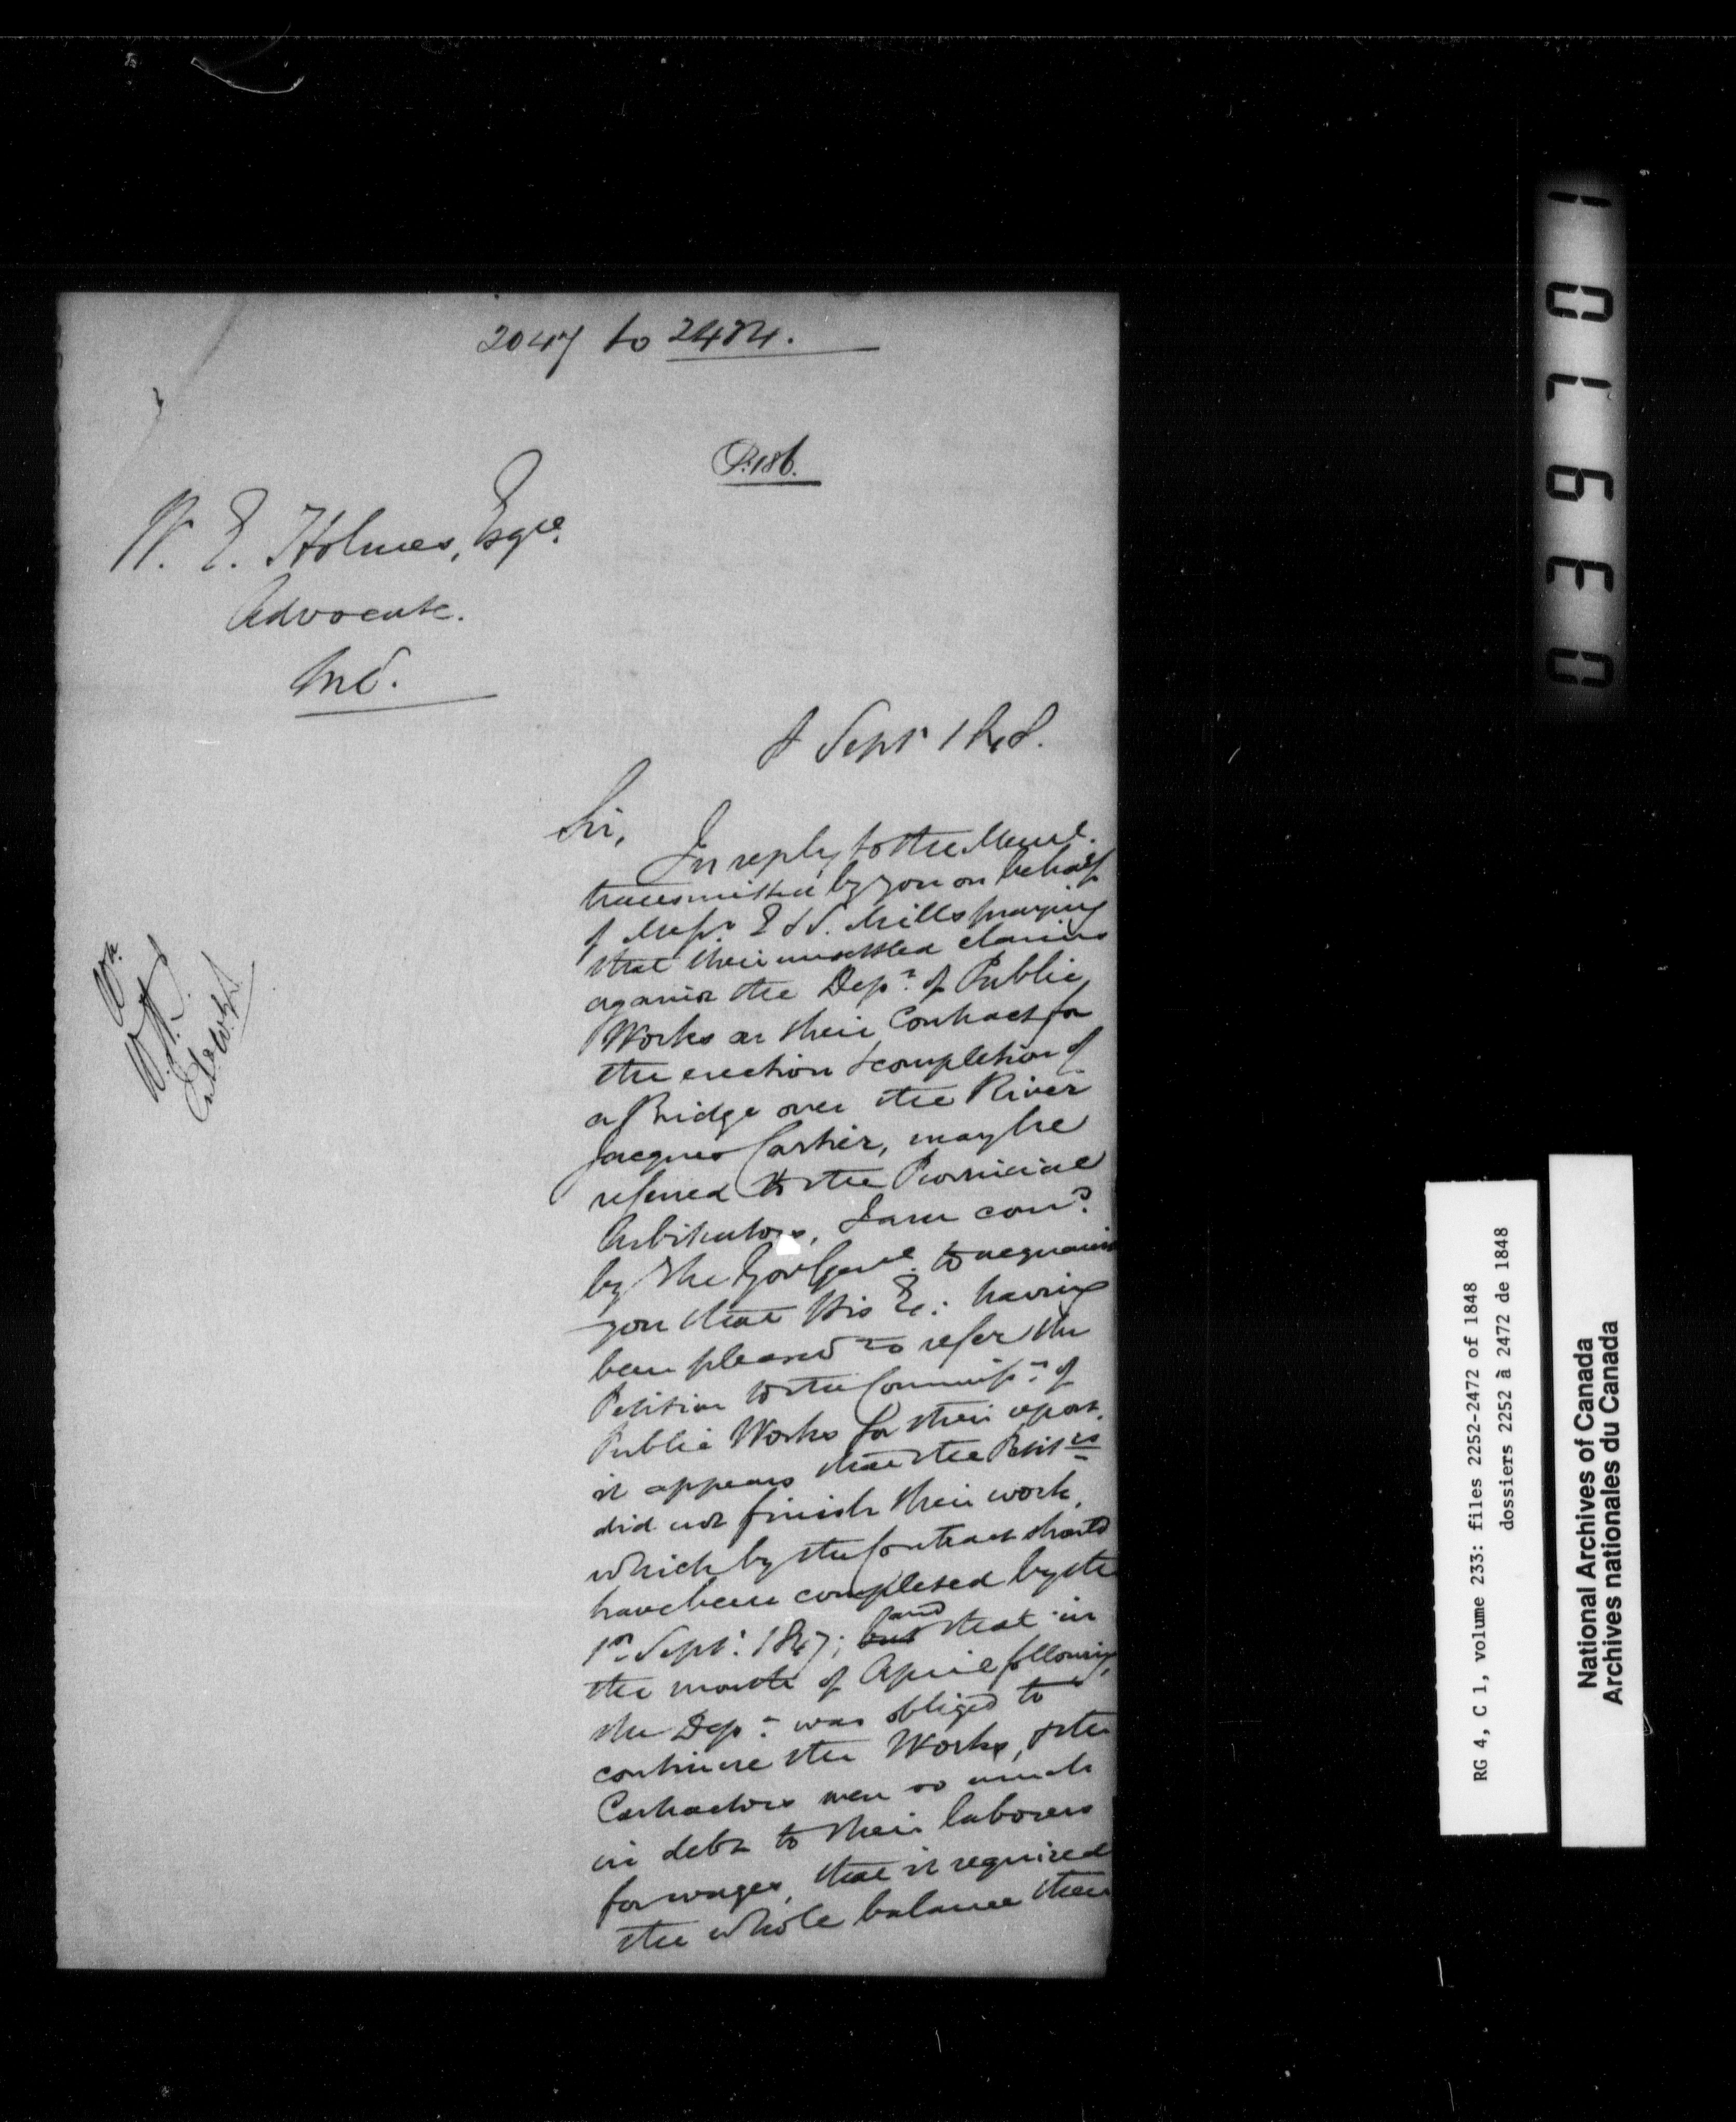 2047 to 2484.
P.186.
W. E. Holmes, Esqre.
Advocate.
8 Septr 1848.
Sir,
In reply to the Meml.
transmitted by you on behalf
of Messrs. E & S. Mills praying
that their unsettled claims
against the Dept. of Public
Works on their Contract for
the erection & completion of
a Bridge over the River
Jacques Cartier, may be
referred to the Provincial
Arbitrators, I am comd.
by the Gov Genl. to acquaint
you that His Ex: having
been pleased to refer the
Petition to the Commissrs. of
Public Works for their report,
it appears that the Petitrs
did not finish their work,
which by the Contract should
have been completed by the
1st Septr. 1847; but and that in
the month of April following,
the Dept. was obliged to
continue the Works, & the
Contractors were so much
in debt to their laborers
for wages, that it required
the whole balance then
039701
RG 4, C 1, volume 233: files 2252-2472 of 1848
dossiers 2252 à 2472 de 1848
National Archives of Canada
Archives nationales du Canada